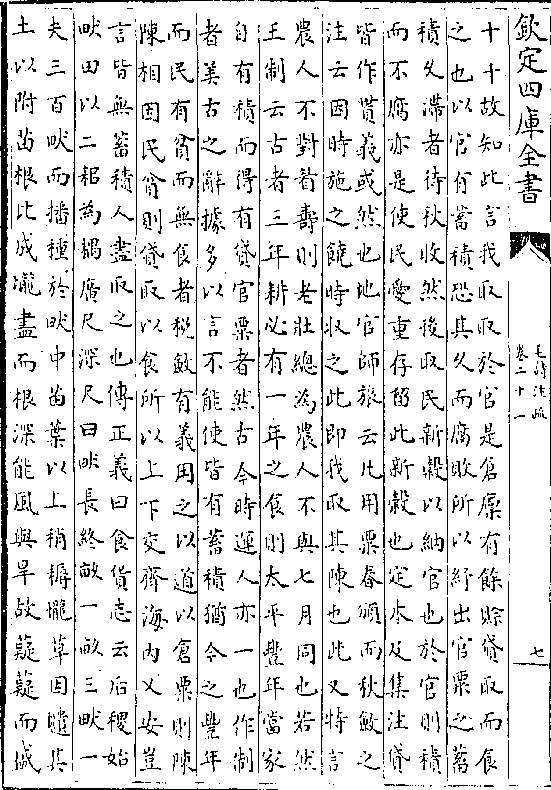 欽定四庫全書
毛詩注疏
卷二十一
七
十千故知此言我取取於官是倉廩有餘賒貸取而食
之也以官有蓄積恐其久而腐敗所以紓出官粟之蓄
積久滯者待秋收然後取民新穀以納官也於官則積
而不腐亦是使民愛重存留此新穀也定本及集注貸
皆作貰義或然也地官師旅云凡用粟春頒而秋斂之
注云因時施之饒時收之此即我取其陳也此又特言
農人不對耆壽則老壯總為農人不與七月同也若然
王制云古者三年耕必有一年之食則太平豐年當家
自有積而得有貸官粟者然古今時運人亦一也作制
者美古之辭據多以言不能使皆有蓄積猶今之豐年
而民有貧而無食者稅斂有義用之以道以倉粟則陳
陳相因民貧則貸取以食所以上下交齊海內乂安豈
言皆無蓄積人盡取之也傳正義曰食貨志云后稷始
甽田以二耜為耦廣尺深尺曰甽長終畝一畝三甽一
夫三百甽而播種於甽中苗葉以上稍耨壠草因壝其
土以附苗根比成壠盡而根深能風與旱故薿薿而盛